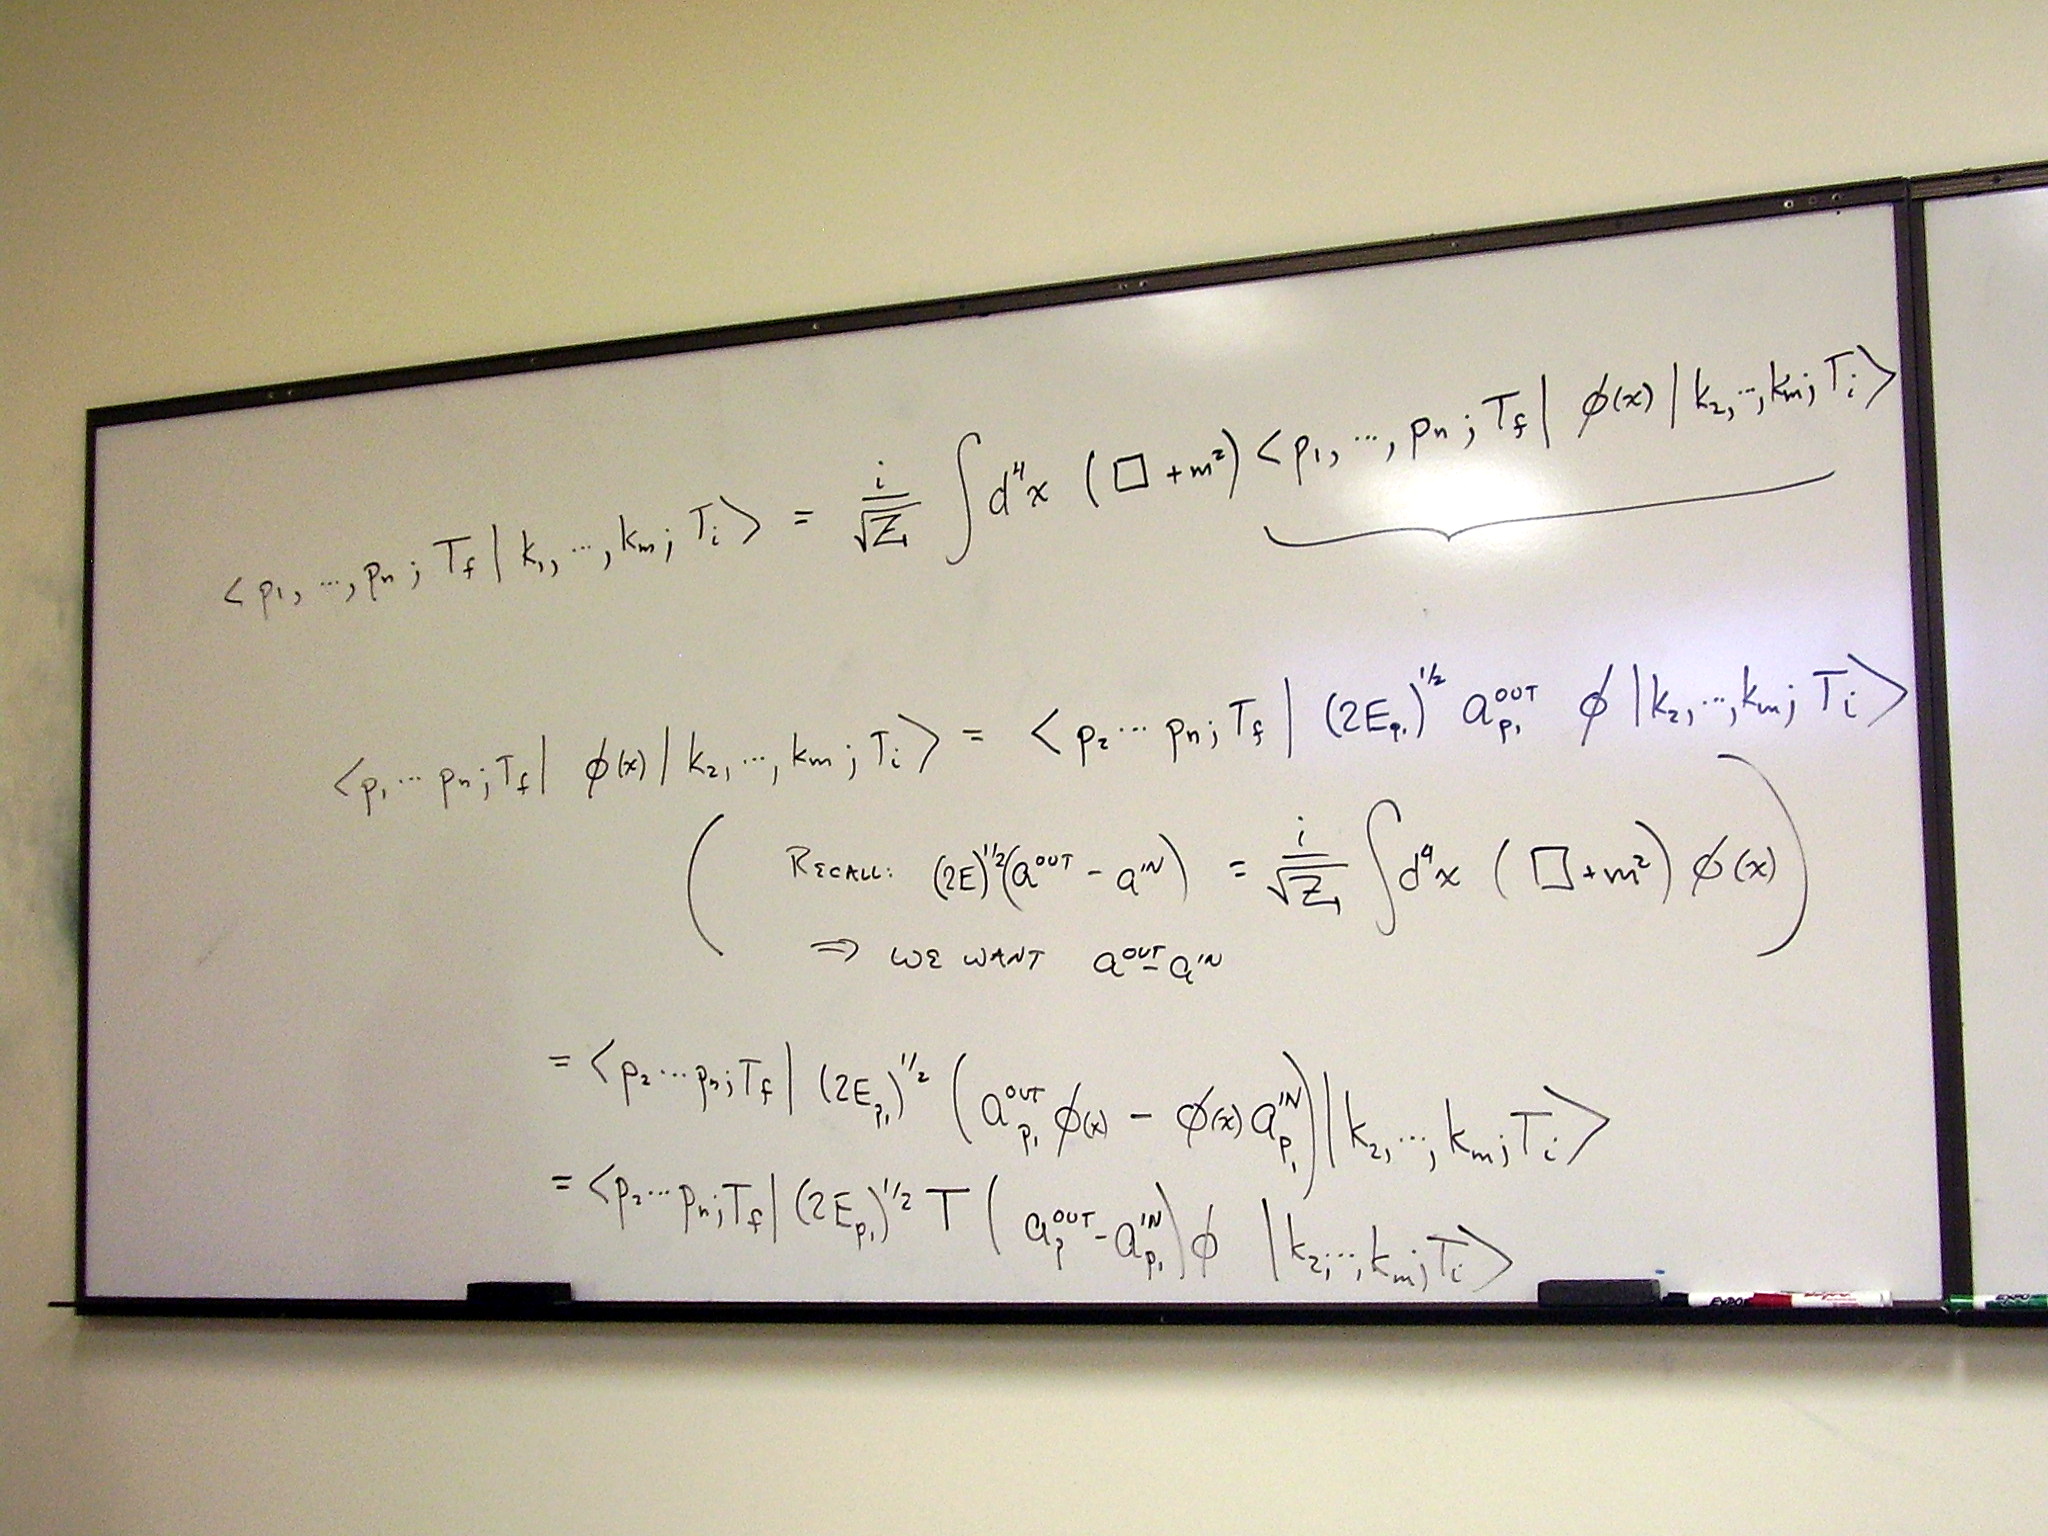 <p₁, ..., pₙ ; T_f | k₁, ..., kₘ; Tᵢ> = i/√Z₁ ∫d⁴x (□ + m²) <p₁, ..., pₙ ; T_f | ϕ(x) | k₂, ..., kₘ; Tᵢ>
<p₁ ... pₙ; T_f | ϕ(x) | k₂, ..., kₘ ; Tᵢ> = <p₂ ... pₙ; T_f | (2E_p₁)^1/2 a_p₁^OUT ϕ | k₂, ..., kₘ; Tᵢ>
( RECALL: (2E)^1/2 (a^OUT - a^IN) = i/√Z₁ ∫d⁴x (□ + m²) ϕ(x) )
⇒ WE WANT a^OUT - a^IN
= <p₂ ... pₙ; T_f | (2E_p₁)^1/2 (a_p₁^OUT ϕ(x) - ϕ(x) a_p₁^IN) | k₂, ..., kₘ; Tᵢ>
= <p₂ ... pₙ; T_f | (2E_p₁)^1/2 T (a_p^OUT - a_p₁^IN) ϕ | k₂, ..., kₘ; Tᵢ>
EXPO